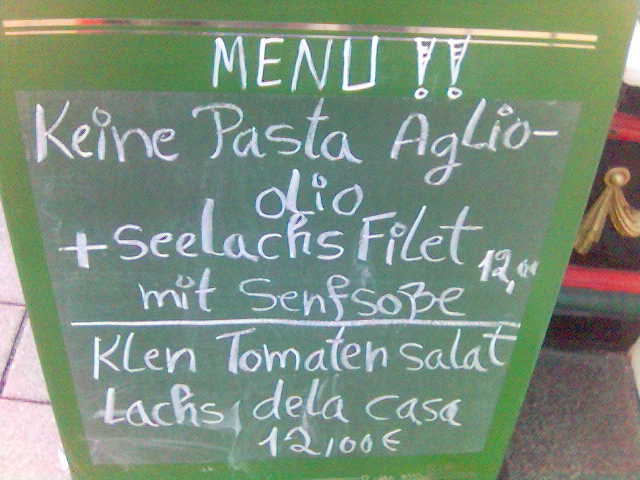 MENU !!
Keine Pasta Aglio-
olio
+ Seelachs Filet
12,00
mit Senfsoße
Klen Tomaten salat
Lachs, dela casa
12,00€